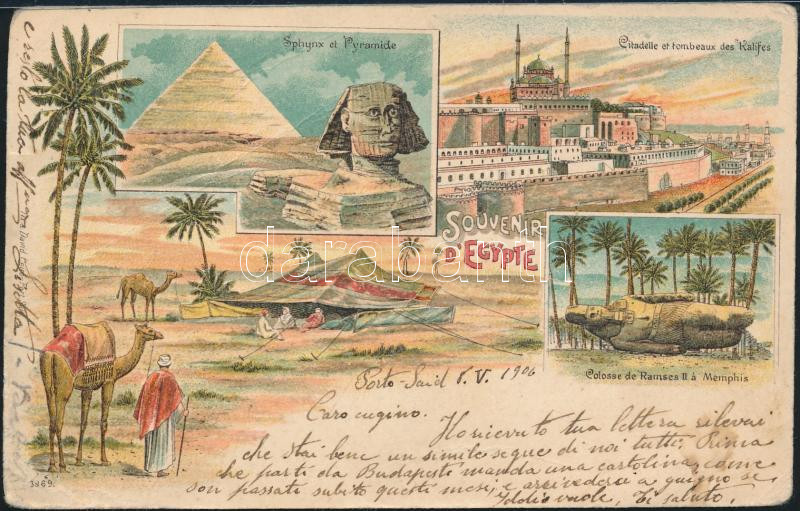 Sphynx et Pyramide
Citadelle et tombeaux des Kalifes
SOUVENIR
D'EGYPTE
darabanth
Colosse de Ramses II à Memphis
Porto-Said 8. V. 1906
Caro cugino.
Ho ricevuto tua lettera rilevai
che stai bene un simile segue di noi tutti. Prima
che parti da Budapest manda una cartolina, come
son passati subito questi mesi, e arrivederci a giugno se
Iddio vuole, ti saluto,
e resto la tua aff
3869.